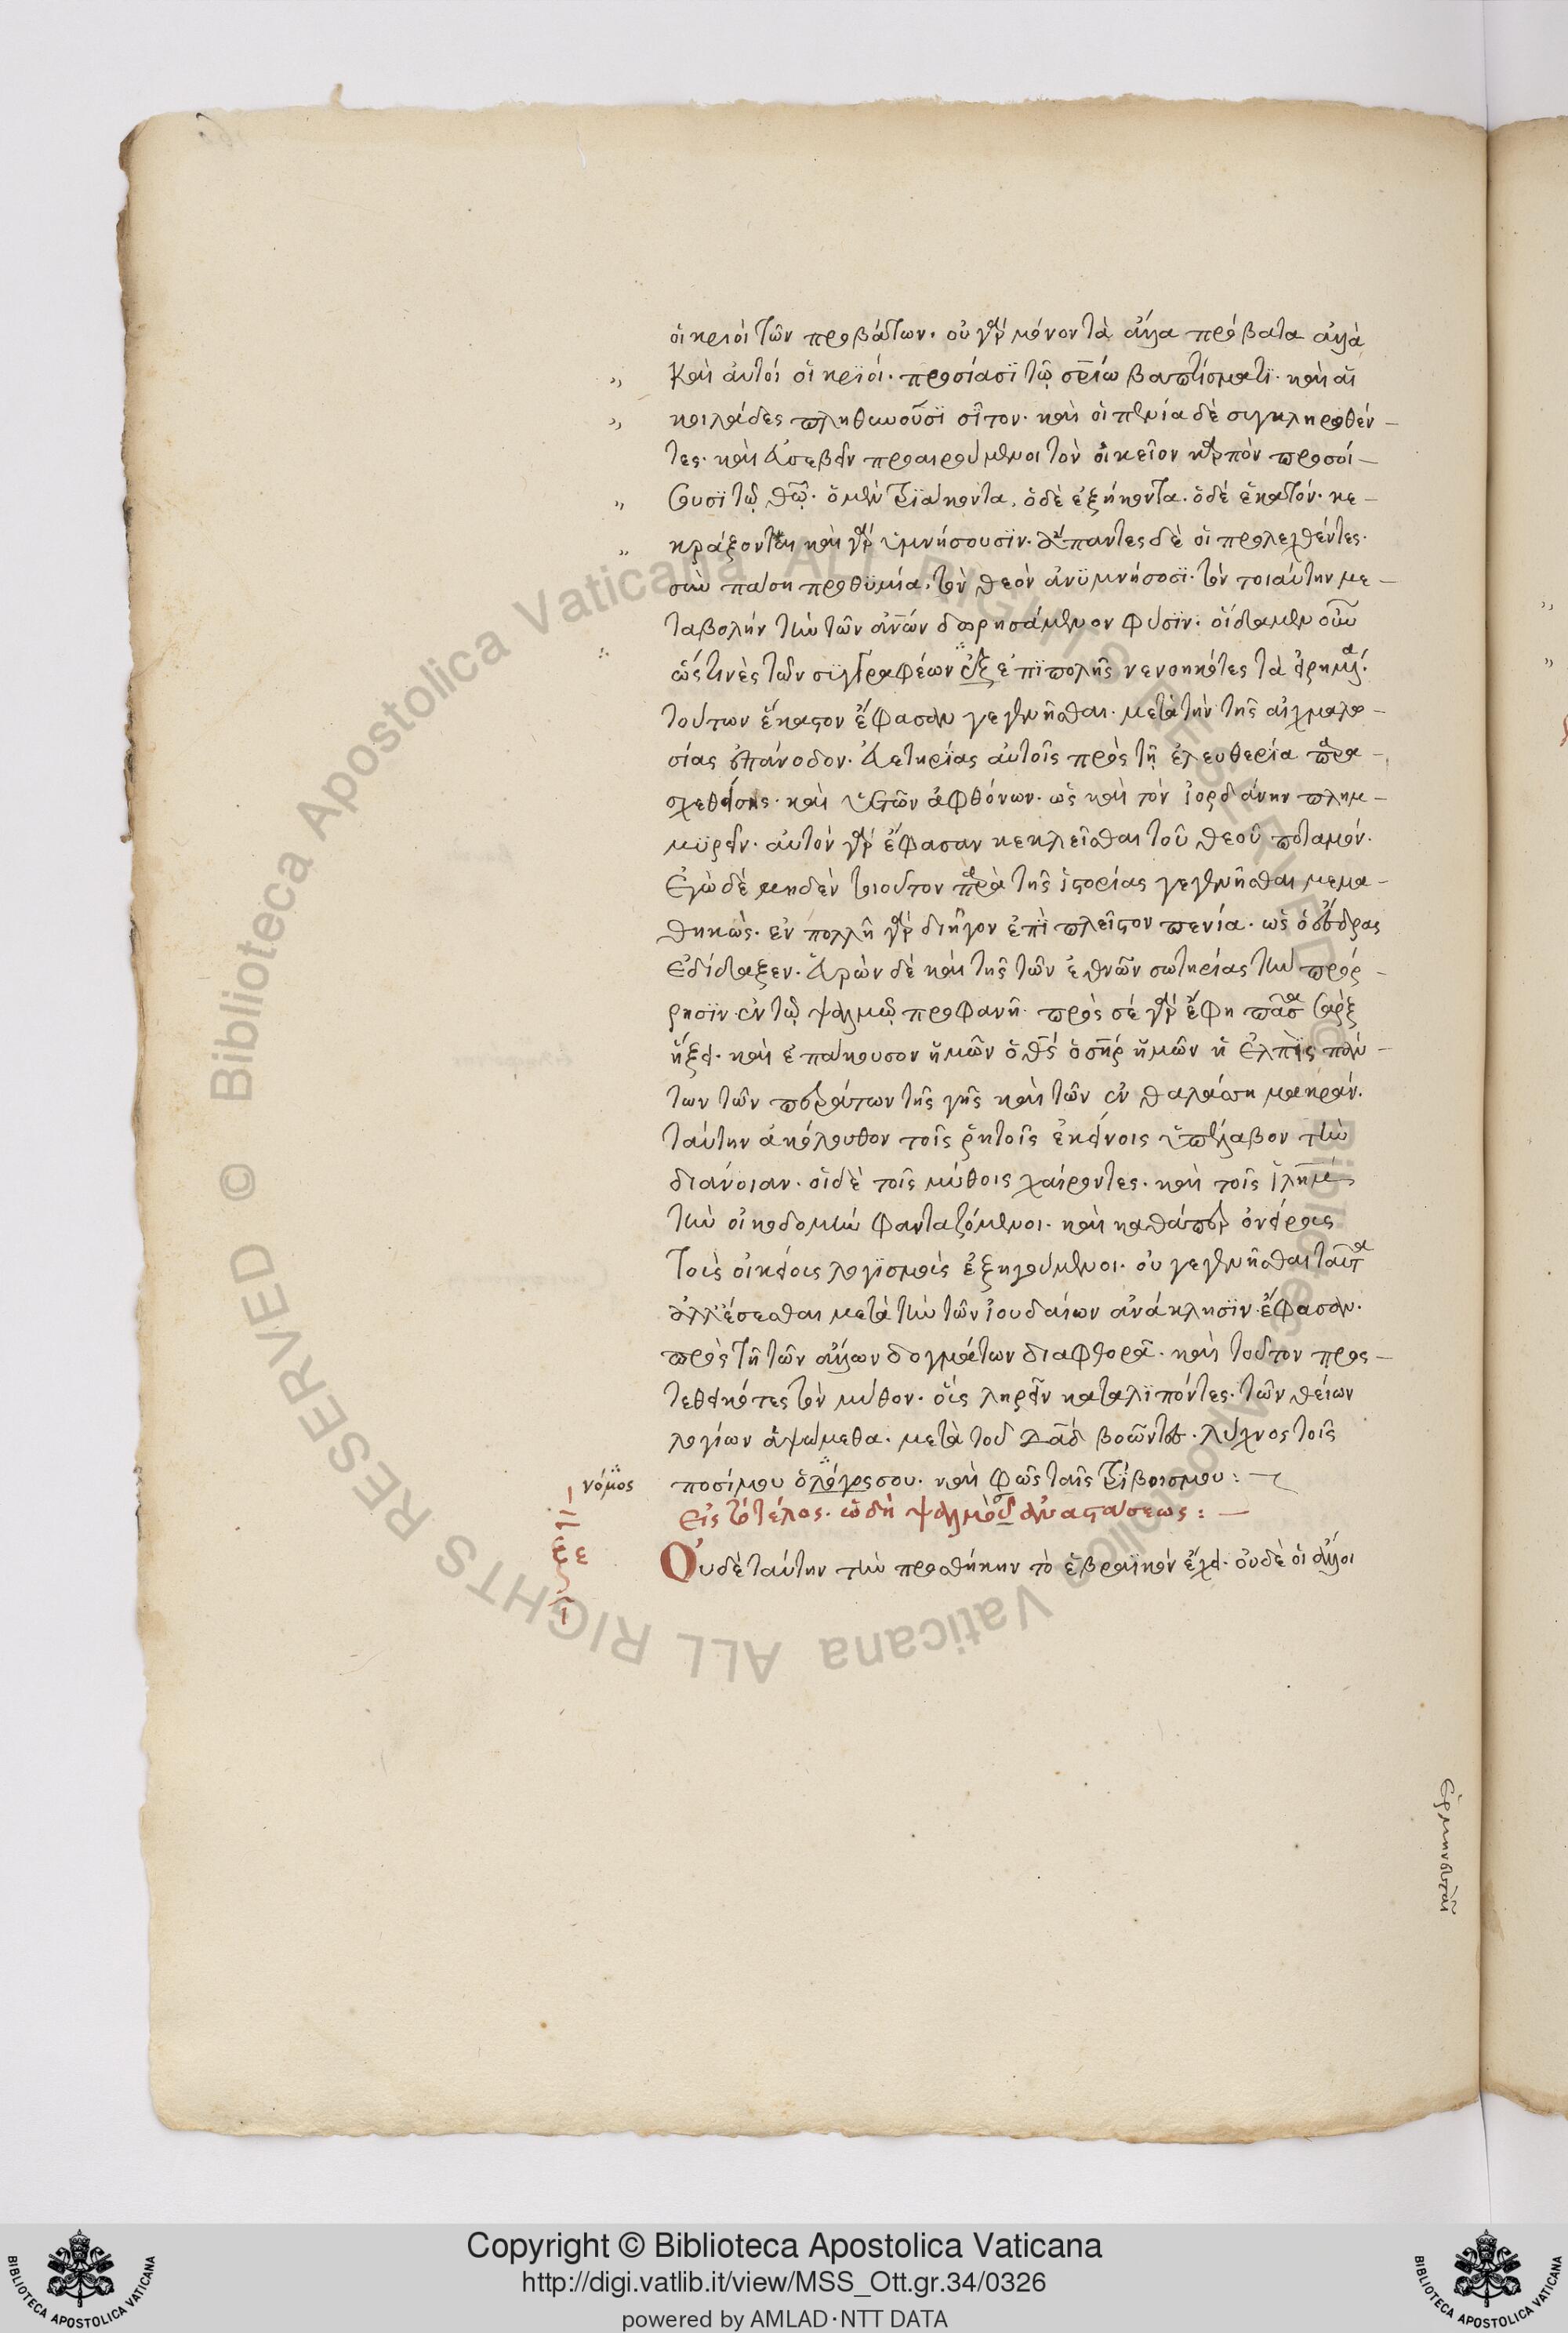 οἱ κριοὶ τῶν προβάτων· οὐ γὰρ μόνον τὰ ἄλλα πρόβατα ἀλλὰ
καὶ αὐτοὶ οἱ κριοί· προσίασι τῷ σρ̅ίω βαπτίσματι· καὶ αἱ
κοιλάδες πληθυνοῦσι σῖτον· καὶ οἱ πενία δὲ συγκληρωθέν-
τες· καὶ εὐσεβεῖν προαιρούμενοι τὸν οἰκεῖον καρπὸν προσοί-
σουσι τῷ θω̅· ὁ μὲν τριάκοντα, ὁ δὲ ἐξήκοντα· ὁ δὲ ἑκατόν· κε-
κράξονται καὶ γὰρ ὑμνήσουσιν· ἅπαντες δὲ οἱ προλεχθέντες·
σὺν πάσῃ προθυμία, τὸν θεὸν ἀνυμνήσοσι· τὸν τοιαύτην με-
ταβολὴν τὴν τῶν ἀν̅ων δωρησάμενον φύσιν· οἴδαμεν οὖν
ὥς τινες τῶν συγγραφέων ἐξ ἐπιπολῆς νενοηκότες τὰ εἰρημένα·
τούτων ἕκαστον ἔφασαν γεγενῆσθαι· μετὰ τὴν τῆς αἰχμαλω-
σίας ἐπάνοδον· εὐετηρίας αὐτοῖς πρὸς τῇ ἐλευθερία παρα-
σχεθείσης· καὶ ὑετῶν ἀφθόνων· ὡς καὶ τὸν ἰορδάνην πλημ-
μυρεῖν· αὐτὸν γὰρ ἔφασαν κεκλεῖσθαι τοῦ θεοῦ ποταμόν·
Ἐγὼ δὲ μηδὲν τοιοῦτον παρὰ τῆς ἱστορίας γεγενῆσθαι μεμα-
θηκὼς· ἐν πολλῆ γὰρ διῆγον ἐπὶ πλεῖστον πενία· ὡς ὁ ἔσδρας
ἐδίδαξεν· εὑρὼν δὲ καὶ τῆς τῶν ἐθνῶν σωτηρίας τὴν πρόρ-
ρησιν ἐν τῷ ψαλμῷ προφανῆ· πρὸς σέ γὰρ ἔφη πᾶσα σὰρξ
ἥξει· καὶ ἐπάκουσον ἡμῶν ὁ θς̅ ὁ σηρ̅ ἡμῶν ἡ ἐλπὶς πάν-
των τῶν περάτων τῆς γῆς καὶ τῶν ἐν θαλάσση μακράν·
ταύτην ἀκόλουθον τοῖς ῥητοῖς ἐκείνοις ὑπέλαβον τὴν
διάνοιαν· οἱ δὲ τοῖς μύθοις χαίροντες· καὶ τοῖς ἰλημ̅
τὴν οἰκοδομὴν φανταζόμενοι· καὶ καθάπερ ὀνείρους
τοὺς οἰκείους λογισμοὺς ἐξηγούμενοι· οὐ γεγενῆσθαι ταῦτα
ἀλλ' ἔσεσθαι μετὰ τὴν τῶν ἰουδαίων ἀνάκλησιν ἔφασαν·
πρὸς τῇ τῶν ἄλλων δογμάτων διαφθορᾶ· καὶ τοῦτον προσ-
τεθεικότες τὸν μύθον· οἷς ληρεῖν καταλιπόντες· τῶν θείων
λογίων ἁψώμεθα· μετὰ τοῦ δαδ̅ βοῶντος· λύχνος τοῖς
νόμος ποσί μου ὁ λόγος σου· καὶ φῶς ταῖς τρίβοις μου :
Εἰς τὸ τέλος· ὠδὴ ψαλμοῦ ἀναστάσεως : —
ξε Οὐδὲ ταύτην τὴν προσθήκην τὸ ἑβραϊκὸν ἔχει· οὐδὲ οἱ ἄλλοι
ἑρμηνευταὶ
Copyright © Biblioteca Apostolica Vaticana
http://digi.vatlib.it/view/MSS_Ott.gr.34/0326
powered by AMLAD·NTT DATA